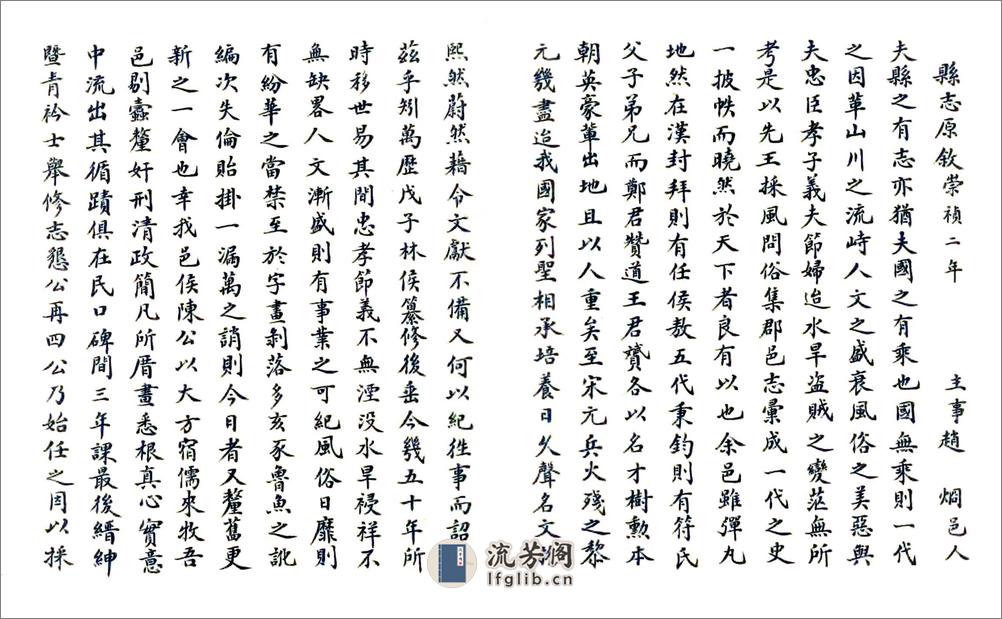 縣志原敘崇禎二年　主事趙　烱邑人
夫縣之有志亦猶夫國之有乘也國無乘則一代
之因革山川之流峙人文之盛衰風俗之美惡與
夫忠臣孝子義夫節婦迨水旱盜賊之變茫無所
考是以先王採風問俗集郡邑志彙成一代之史
一披帙而曉然於天下者良有以也余邑雖彈丸
地然在漢封拜則有任侯敖五代秉鈞則有符氏
父子弟兄而鄭君贊道王君贇各以名才樹勳本
朝英豪輩出地且以人重矣至宋元兵火殘之黎
元幾盡迨我國家列聖相承培養日久聲名文物
熙然蔚然藉令文獻不備又何以紀徃事而詔
茲乎矧萬歷戊子林侯纂修後垂今幾五十年所
時移世易其間忠孝節義不無湮没水旱祲祥不
無缺畧人文漸盛則有事業之可紀風俗日靡則
有紛華之當禁至於字畫剝落多亥豕魯魚之訛
編次失倫貽掛一漏萬之誚則今日者又釐舊更
新之一會也幸我邑侯陳公以大方宿儒來牧吾
邑剔蠧釐奸刑清政簡凡所厝畫悉根真心實意
中流出其循蹟俱在民口碑間三年課最後縉紳
暨青衿士舉修志懇公再四公乃始任之周以採
流芳阁
lfglib.cn